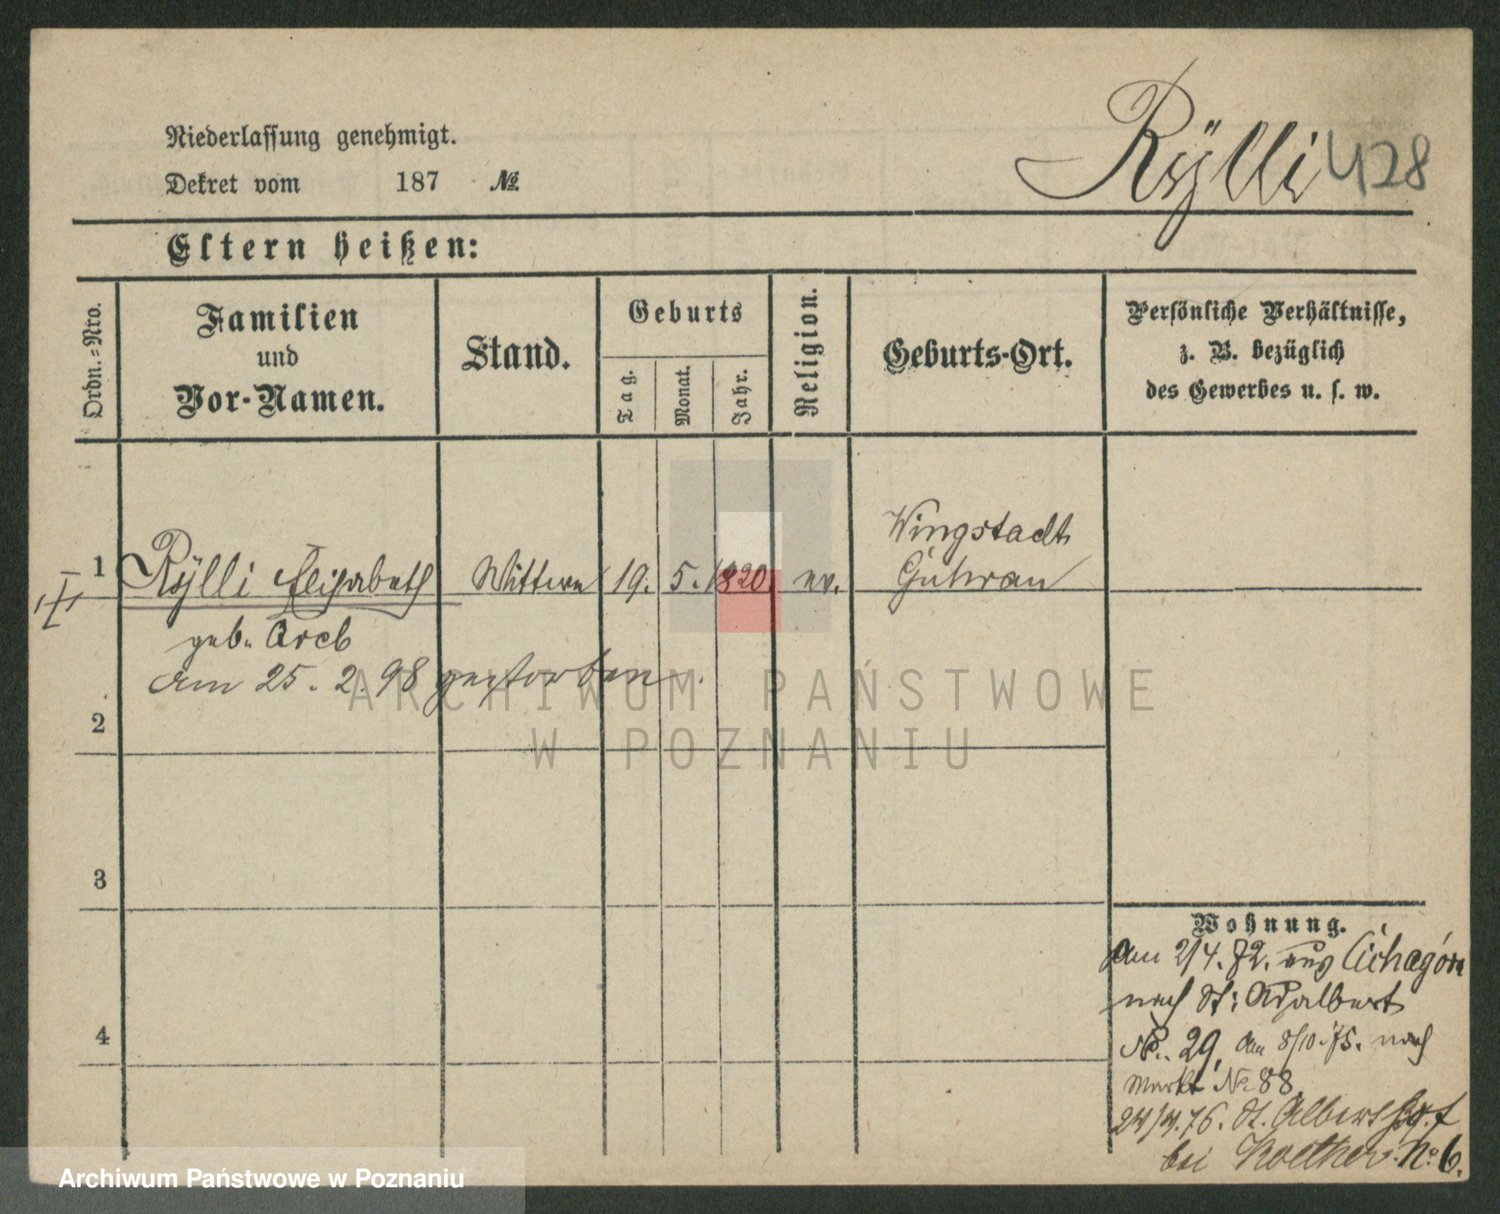 Rÿlli 428
Niederlassung genehmigt.
Dekret vom 187 №
Eltern heißen:
Ordn.=Nro.
Familien
und
Vor-Namen.
Stand.
Geburts
Tag.
Monat.
Jahr.
Religion.
Geburts-Ort.
Persönliche Verhältnisse,
z. B. bezüglich
des Gewerbes u. s. w.
Wingstadt
1 Rÿlli Elisabeth Wittwe 19. 5. 1820 ev. Guhrau
geb.
am 25. 2. 98 gestorben.
2
3
4
Wohnung.
am 2/4. 72. aus Cichagóra
nach St: Adalbert
No. 29, am 8/10. 75. nach
Markt № 88
24/4. 76. St. Adalbert
bei No 6.
ARCHIWUM PAŃSTWOWE
W POZNANIU
Archiwum Państwowe w Poznaniu